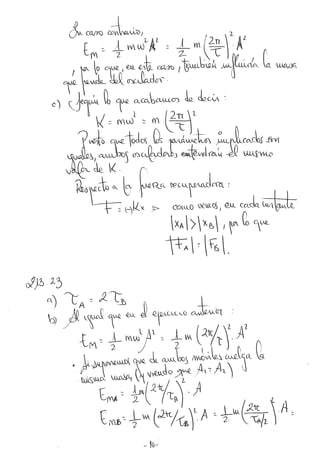 En caso contrario,
E_M = 1/2 mω²A² = 1/2 m (2π/τ)² A²
, por lo que, en este caso, también influiría la masa
que pende del oscilador.
c) Según lo que acabamos de decir:
K = mω² = m (2π/τ)²
Puesto que todos los parámetros implicados son
iguales, ambos osciladores tendrán el mismo
valor de K.
Respecto a la fuerza recuperadora:
F = (-)Kx ⇒ como vemos, en cada instante
|x_A| > |x_B|, por lo que
|F_A| = |F_B|.
213 23
a) τ_A = 2 τ_B
b) Al igual que en el ejercicio anterior:
E_M = 1/2 mω²A² = 1/2 m (2π/τ)² A²
• Si suponemos que de ambos móviles cuelga la
misma masa, (y viendo que A₁ = A₂)
E_MA = 1/2 m (2π/τ_A)² · A
E_MB = 1/2 m (2π/τ_B)² · A = 1/2 m (2π/(τ_A/2))² A =
-10-